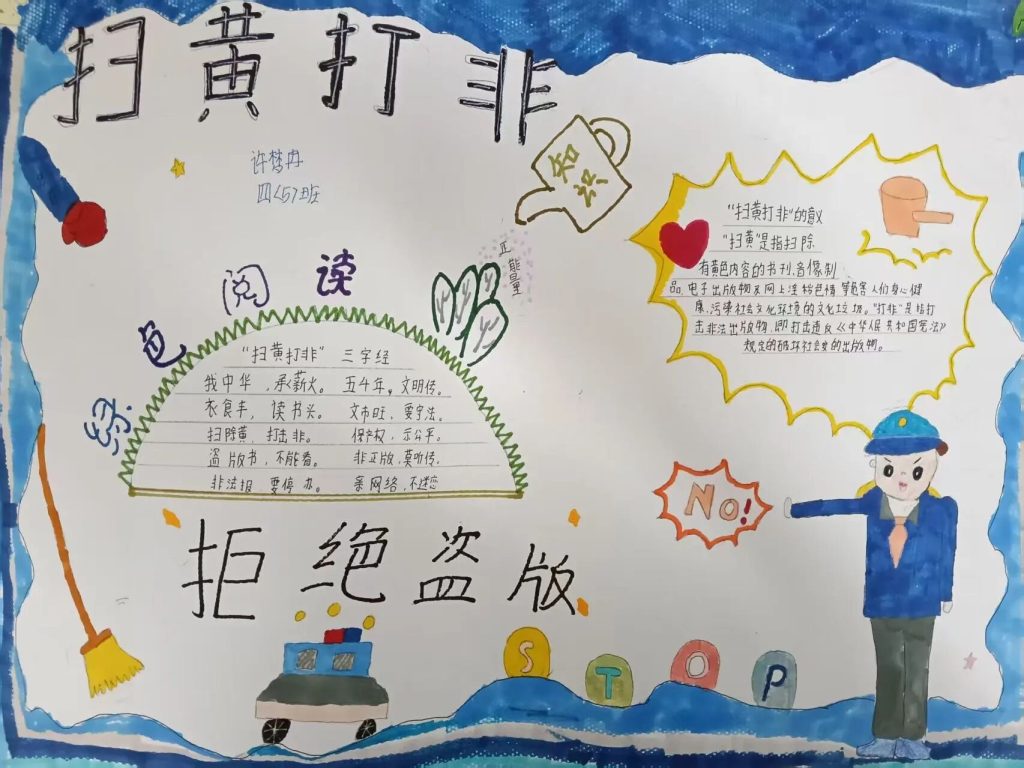 扫黄打非
许梦冉
四(5)班
知识
正能量
绿色阅读
"扫黄打非" 三字经
我中华,承薪火。 五千年,文明传。
衣食丰,读书兴。 文市旺,要守法。
扫除黄,打击非。 保产权,示公平。
盗版书,不能看。 非正版,莫听传。
非法报 要停办。 亲网络,不迷恋
"扫黄打非"的意义
"扫黄"是指扫除
有黄色内容的书刊、音像制
品、电子出版物及网上淫秽色情等危害人们身心健
康、污染社会文化环境的文化垃圾。"打非"是指打
击非法出版物,即打击违反《中华人民共和国宪法》
规定的破坏社会安的出版物。
No!
拒绝盗版
STOP